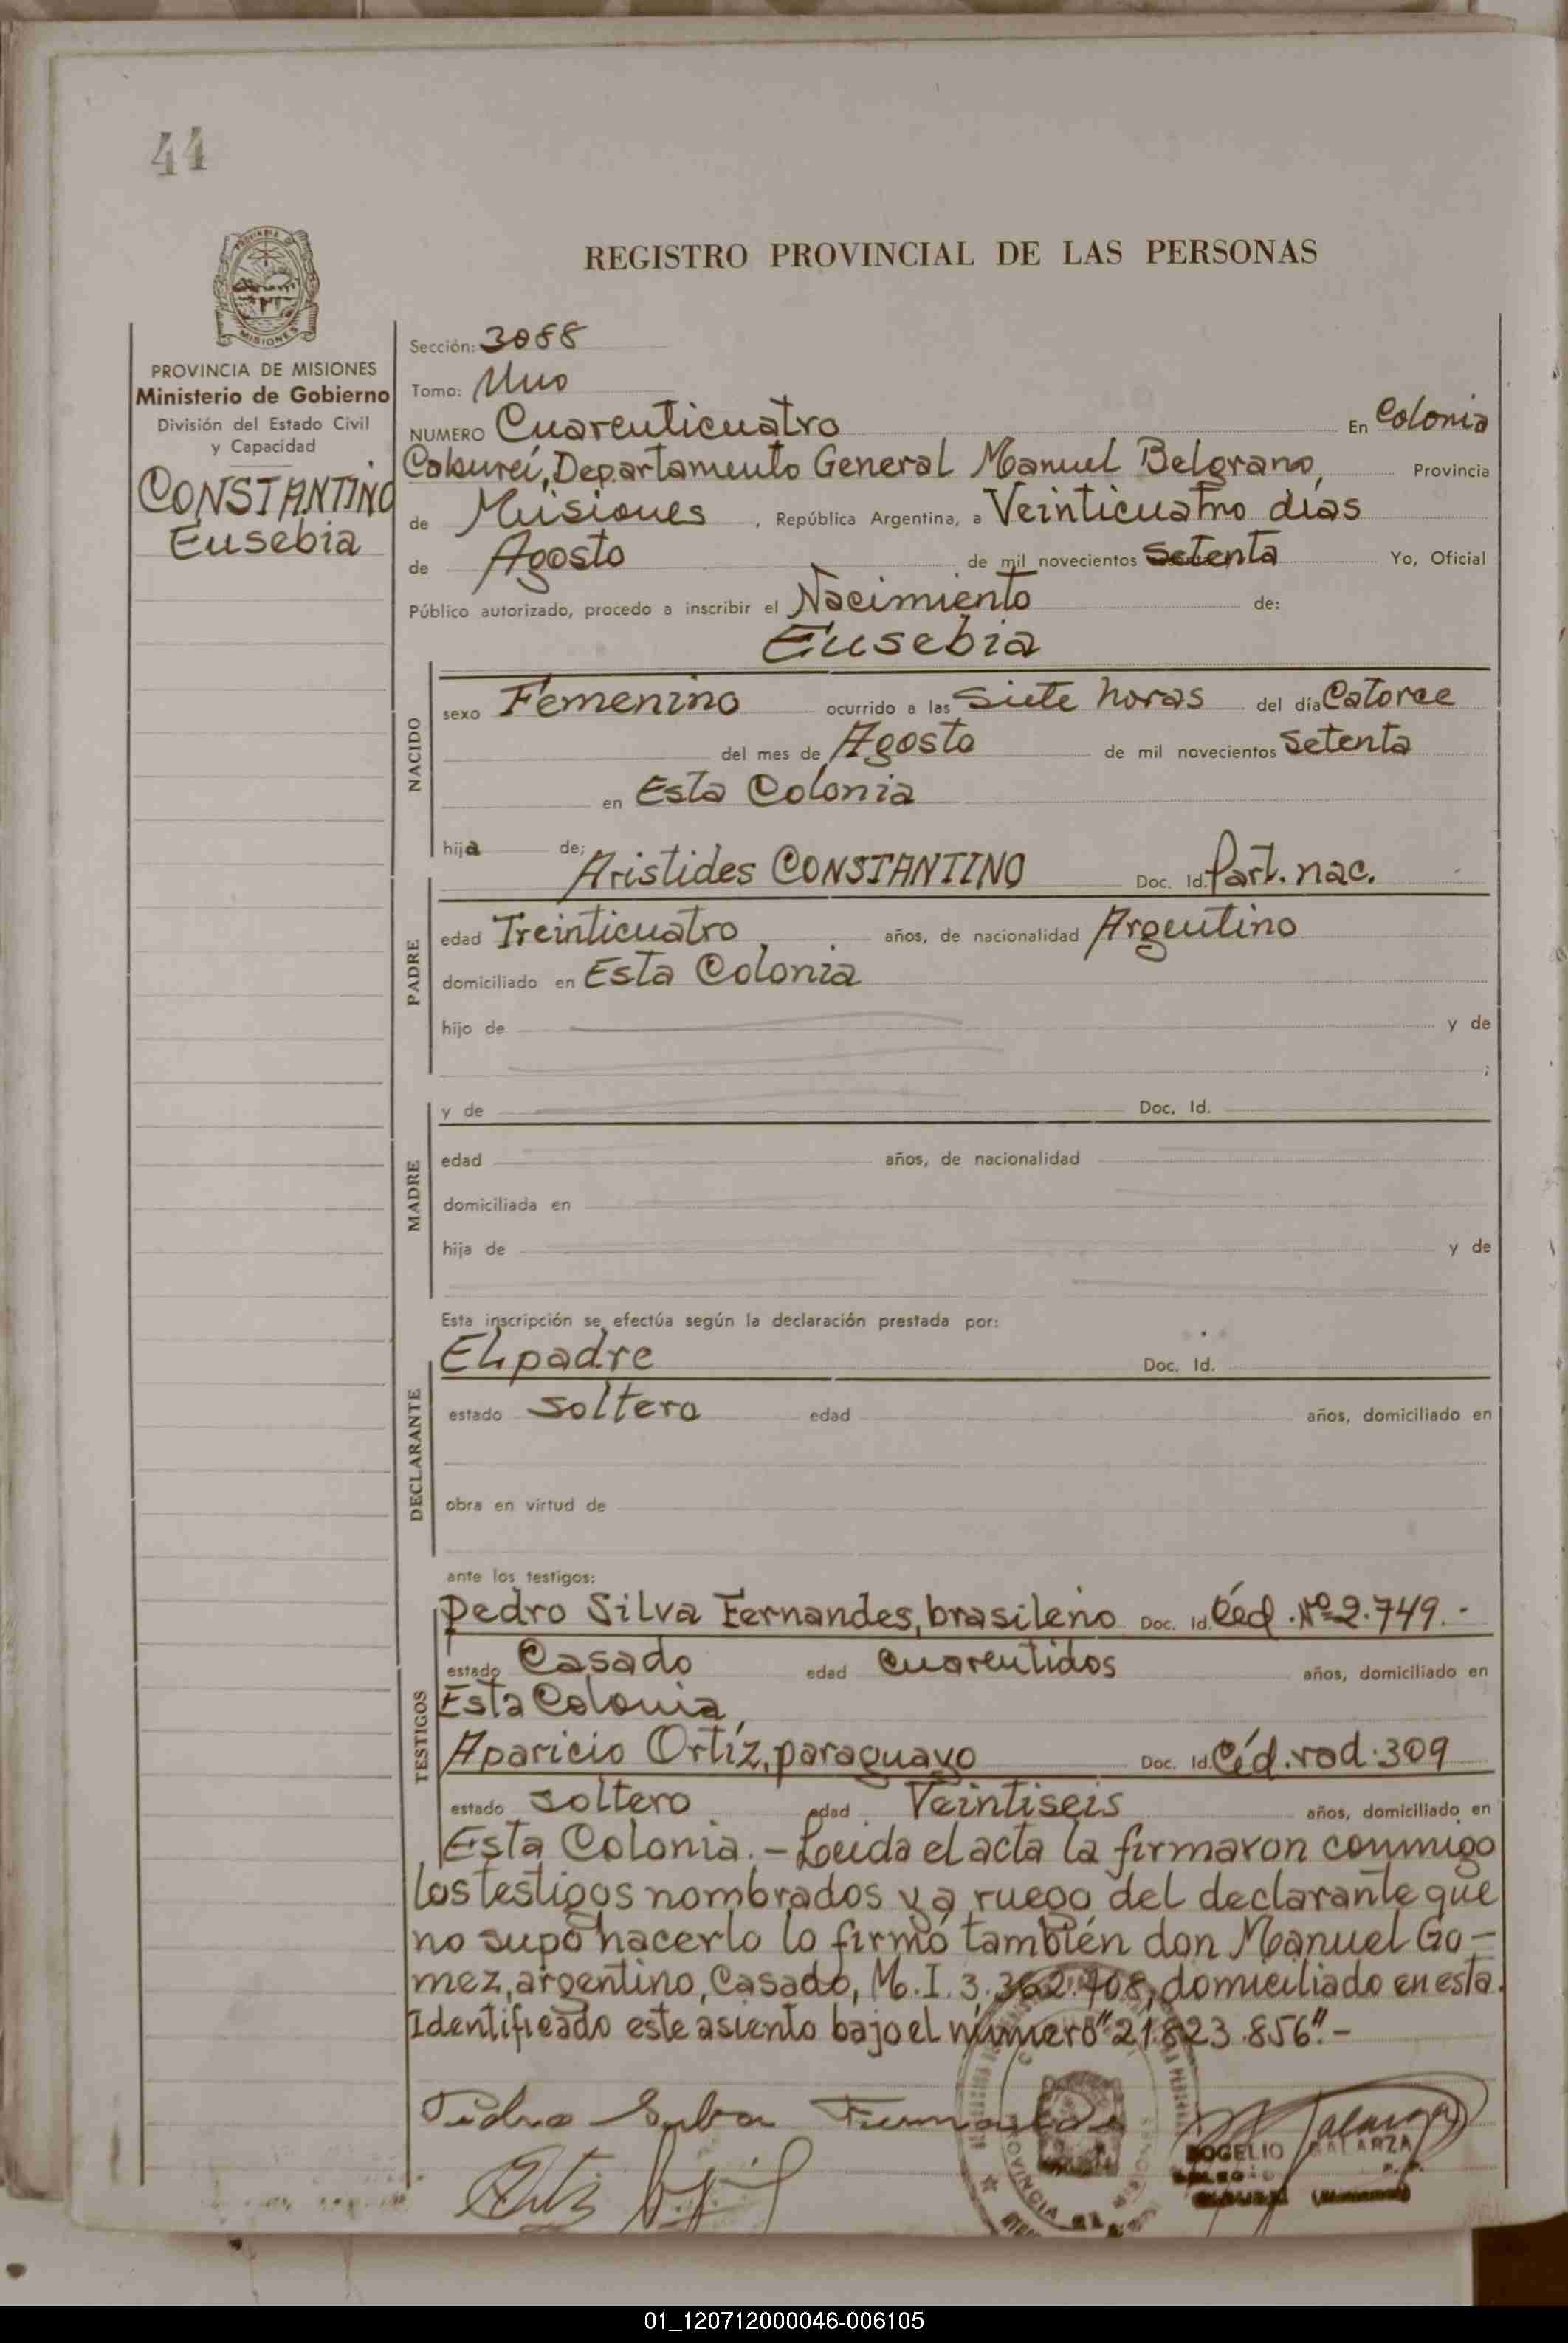 44
REGISTRO PROVINCIAL DE LAS PERSONAS
MISIONES
PROVINCIA DE MISIONES
Ministerio de Gobierno
División del Estado Civil
y Capacidad
CONSTANTINO
Eusebia
Sección: 3088
Tomo: Uno
NUMERO Cuarenticuatro En Colonia
Cabureí, Departamento General Manuel Belgrano, Provincia
de Misiones, República Argentina, a Veinticuatro días
de Agosto de mil novecientos Setenta Yo, Oficial
Público autorizado, procedo a inscribir el Nacimiento de:
Eusebia
NACIDO
sexo Femenino ocurrido a las siete horas del día Catorce
del mes de Agosto de mil novecientos setenta
en Esta Colonia
hija de;
Aristides CONSTANTINO Doc. Id. Part. nac.
PADRE
edad Treinticuatro años, de nacionalidad Argentino
domiciliado en Esta Colonia
hijo de y de
;
MADRE
y de Doc. Id.
edad años, de nacionalidad
domiciliada en
hija de y de
Esta inscripción se efectúa según la declaración prestada por:
DECLARANTE
El padre Doc. Id.
estado soltero edad años, domiciliado en
obra en virtud de
ante los testigos:
TESTIGOS
Pedro Silva Fernandes, brasileño Doc. Id. Céd. Nº 2.749.-
estado Casado edad cuarentidos años, domiciliado en
Esta Colonia,
Aparicio Ortíz, paraguayo Doc. Id. Céd. rad. 309
estado soltero edad Veintiseis años, domiciliado en
Esta Colonia.- Leida el acta la firmaron conmigo
los testigos nombrados y a ruego del declarante que
no supo hacerlo lo firmó también don Manuel Go-
mez, argentino, Casado, M.I. 3.362.408, domiciliado en esta.
Identificado este asiento bajo el número "21.823.856".-
Pedro Silva Fernandes
ROGELIO GALARZA
PROVINCIA
01_120712000046-006105